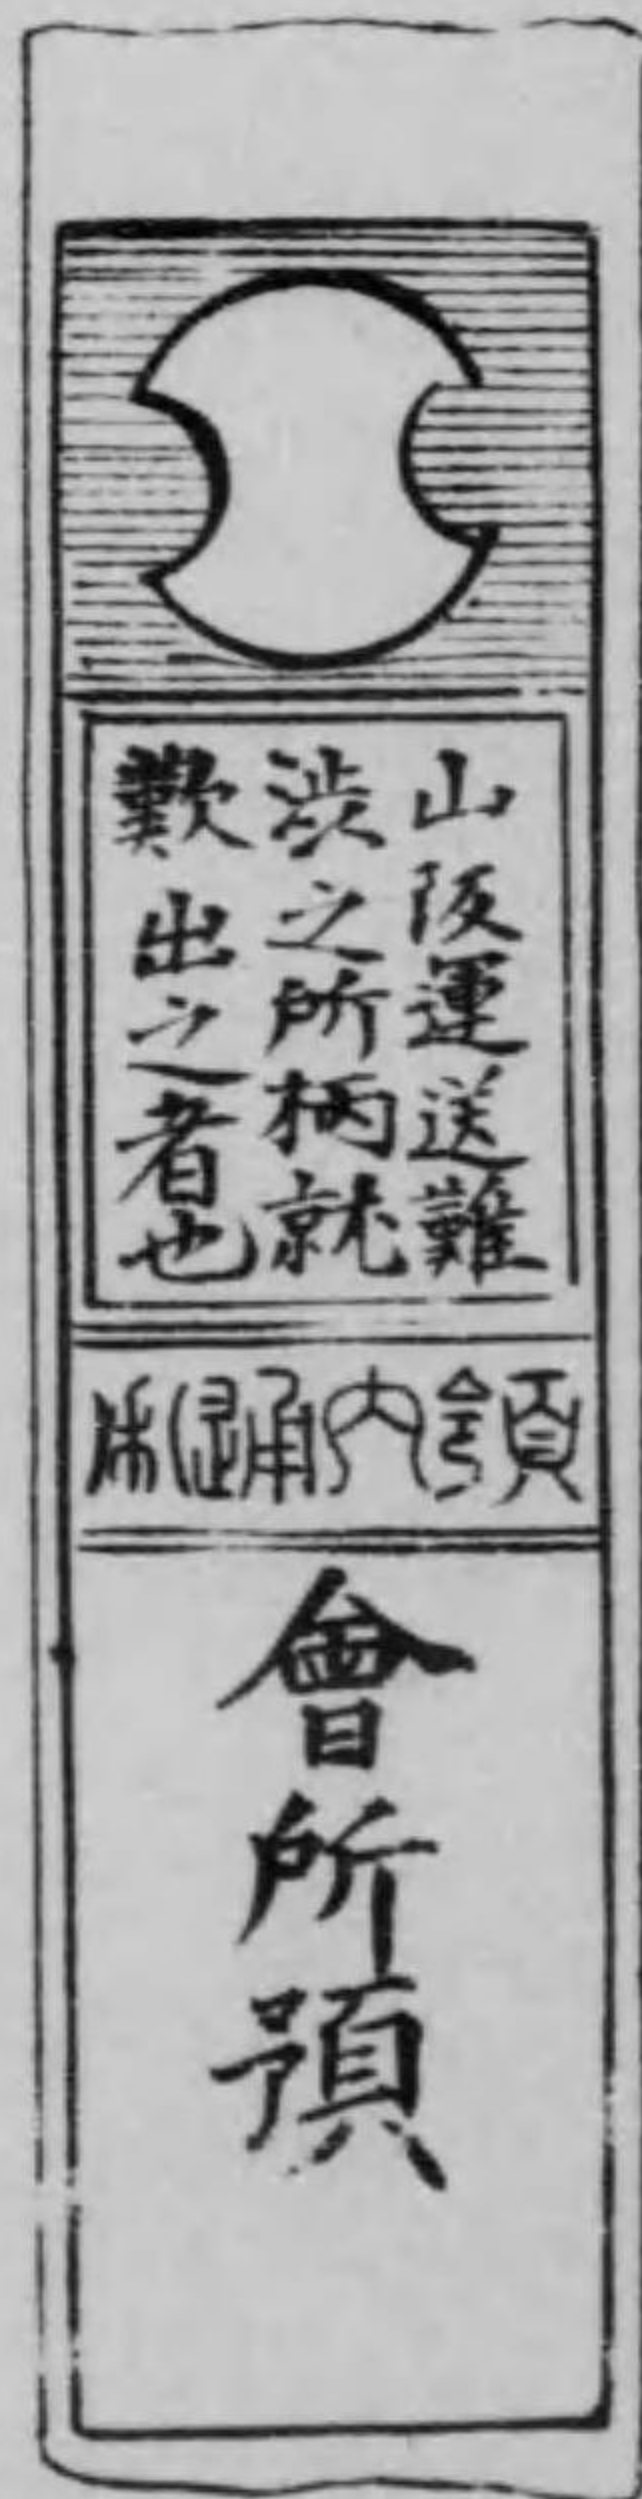 山阪運送難
渋之所柄就
歎出之者也
領令内通利
會所預